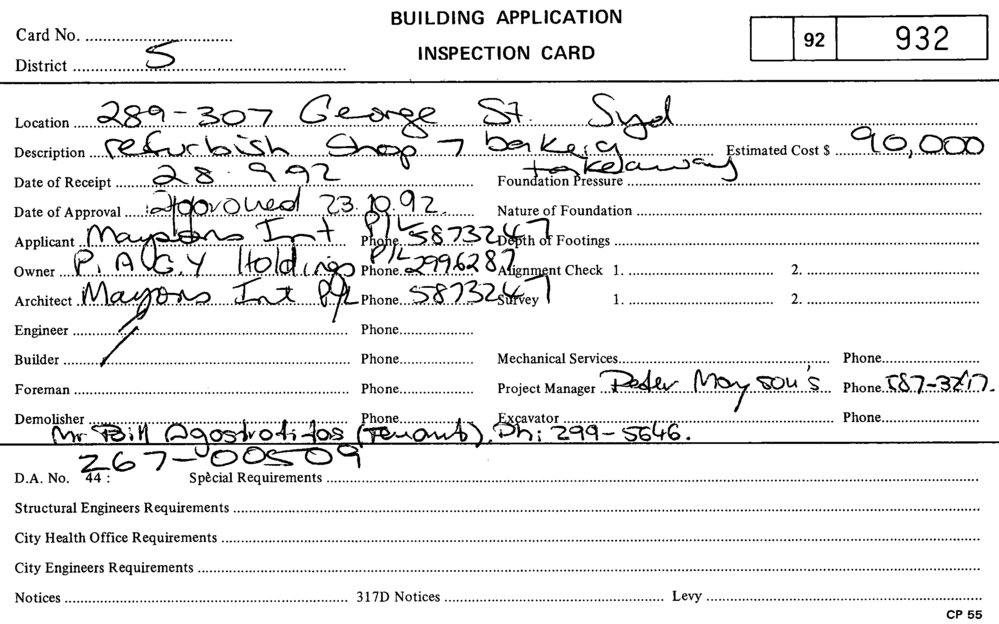 BUILDING APPLICATION
INSPECTION CARD
92 932
Card No.
District 5
Location 289-307 George St. Syd
Description refurbish Shop 7 bakery takeaway Estimated Cost $ 90,000
Date of Receipt 28.9.92 Foundation Pressure
Date of Approval approved 23.10.92. Nature of Foundation
Applicant Maysons Int P/L Phone 5873247 Depth of Footings
Owner P. A. G. Y Holdings P/L Phone 2996287 Alignment Check 1. 2.
Architect Maysons Int P/L Phone 5873247 Survey 1. 2.
Engineer Phone
Builder Phone Mechanical Services Phone
Foreman Phone Project Manager Peter Mayson's Phone 587-3247.
Demolisher Phone Excavator Phone
Mr Bill (Tenant). Ph: 299-5646.
267-00509
D.A. No. 44 : Special Requirements
Structural Engineers Requirements
City Health Office Requirements
City Engineers Requirements
Notices 317D Notices Levy
CP 55